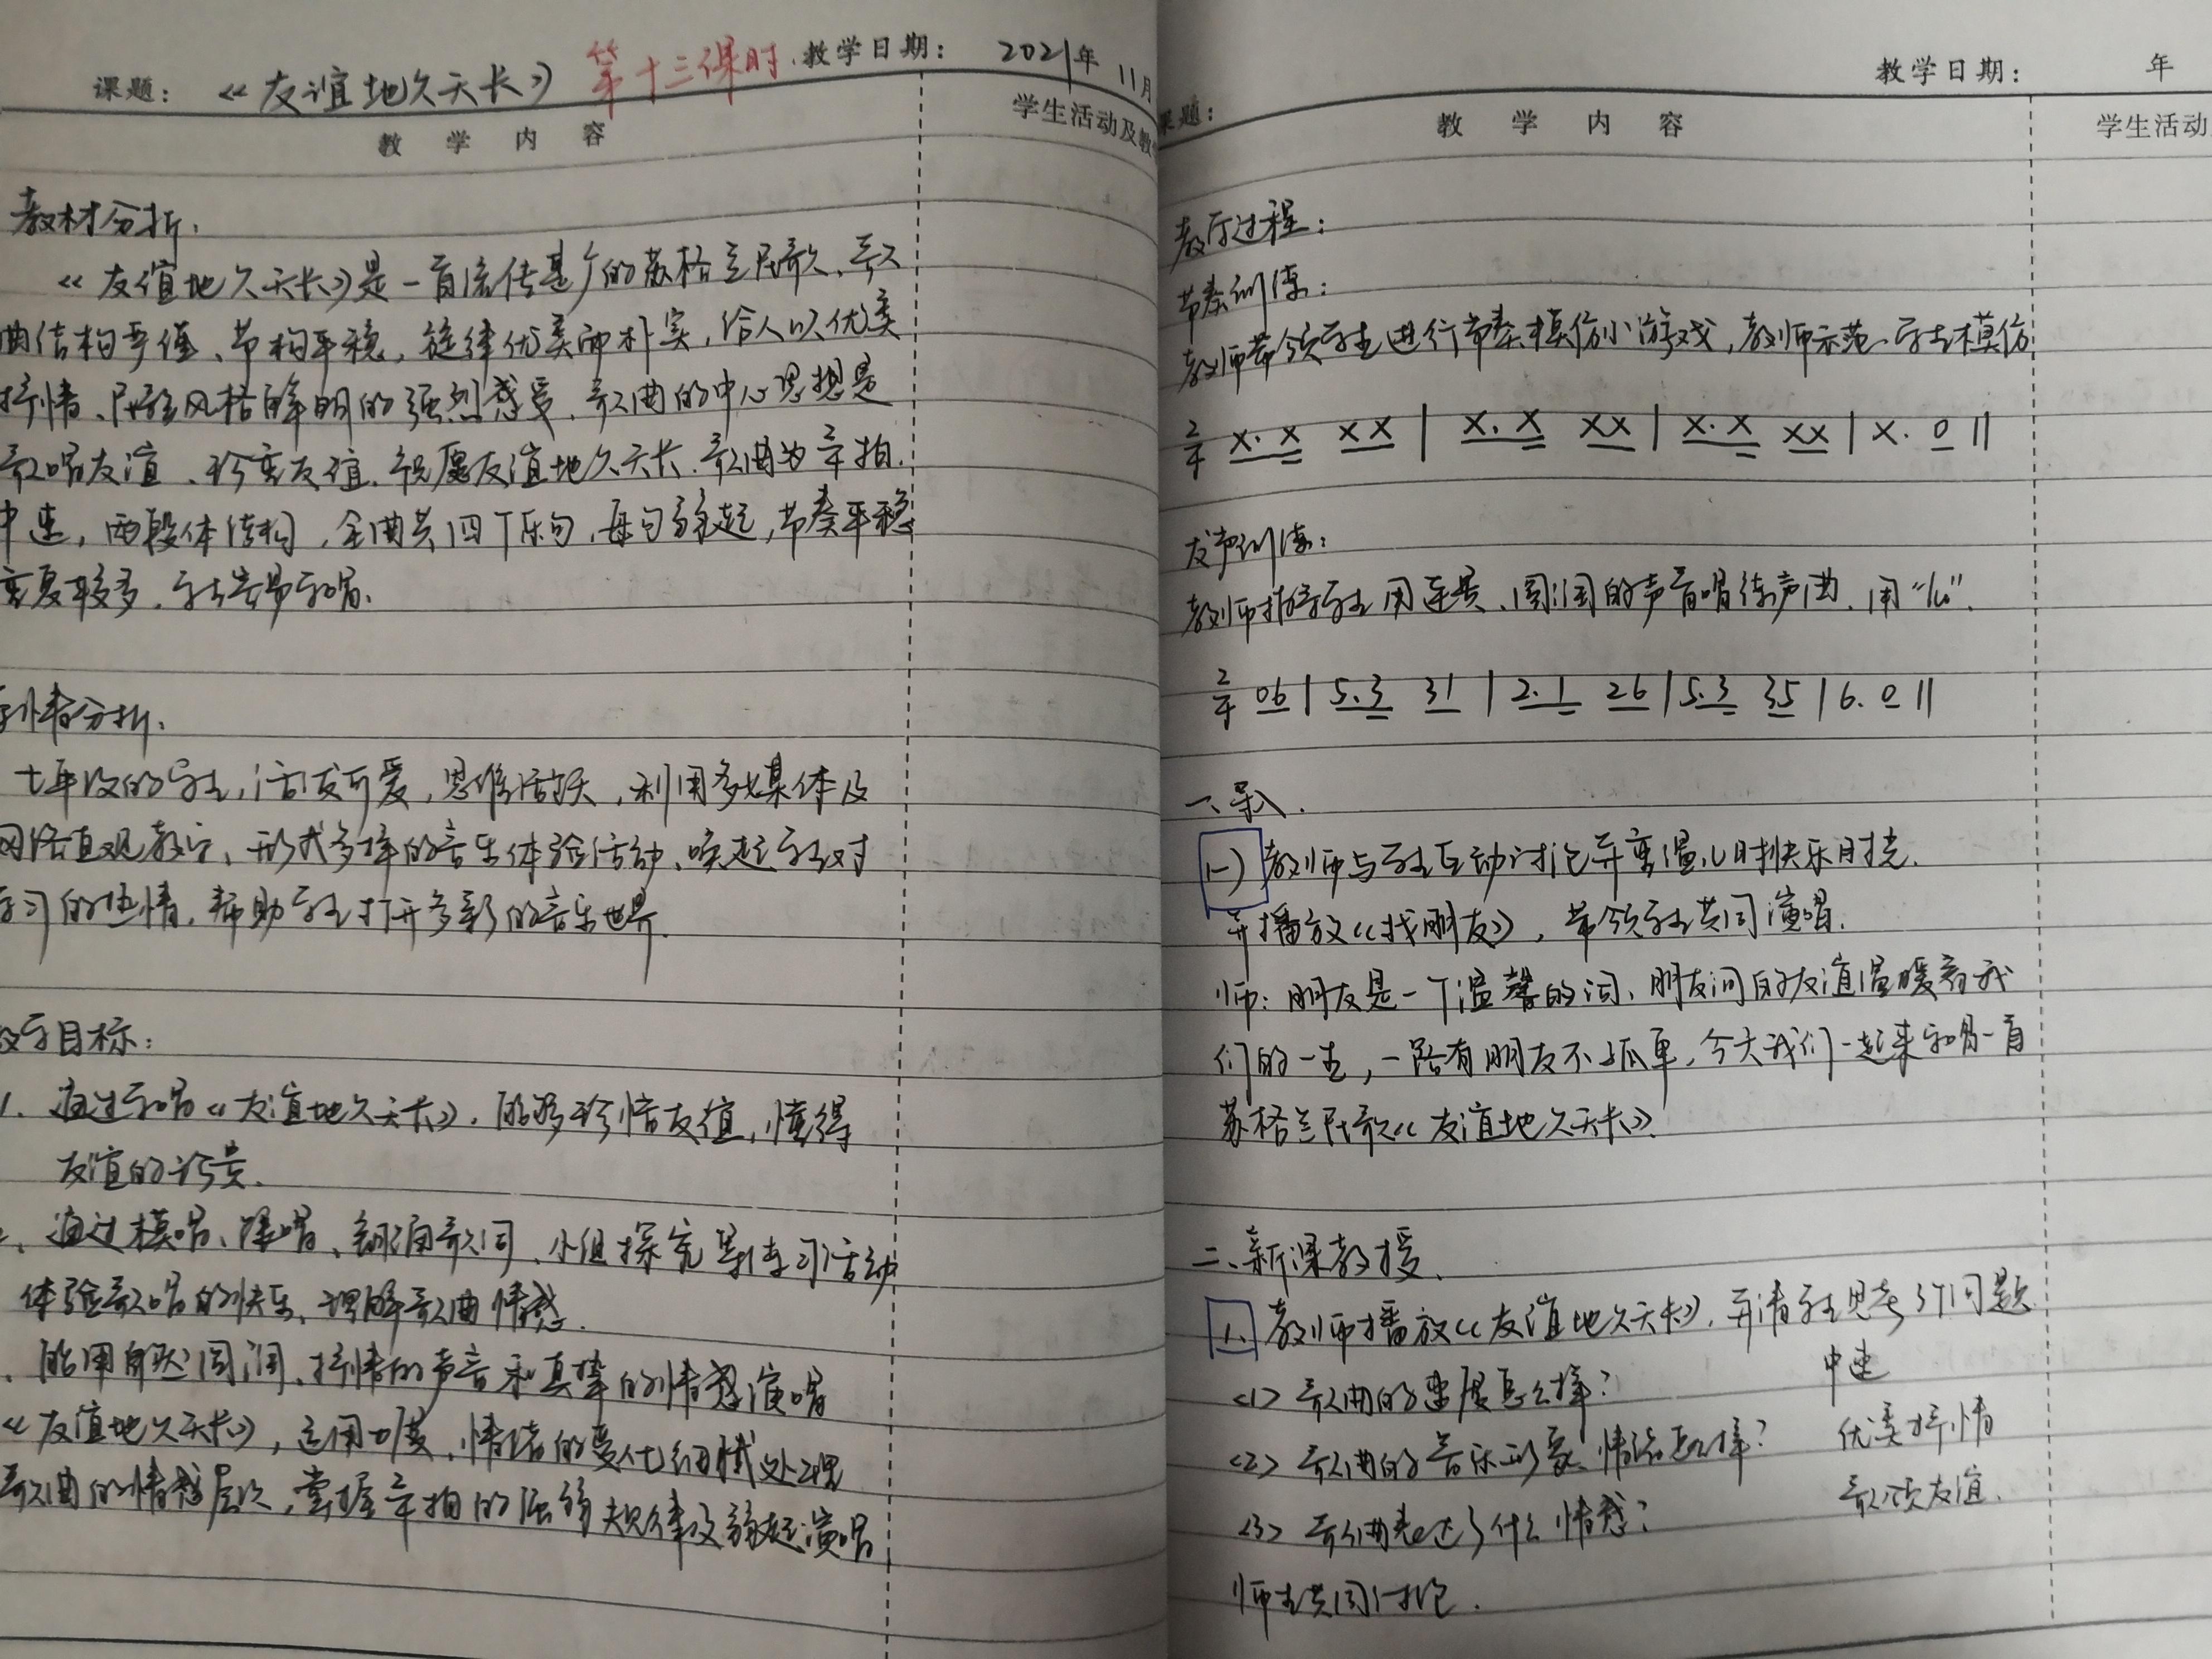 课题：《友谊地久天长》 第十三课时 教学日期： 2021年 11月
教 学 内 容 学生活动及教
教材分析：
《友谊地久天长》是一首流传甚广的苏格兰民歌、歌
曲结构严谨、节构平稳，旋律优美而朴实，给人以优美
抒情、民歌风格鲜明的强烈感受、歌曲的中心思想是
歌唱友谊、珍重友谊、祝愿友谊地久天长.歌曲为2/4拍.
中速，两段体结构，全曲共四个乐句，每句弱起，节奏平稳
重复较多，学生容易学唱、
学情分析、
七年段的学生，活泼可爱，思维活跃，利用多媒体及
网络直观教学、形式多样的音乐体验活动、唤起学生对
学习的热情，帮助学生打开多彩的音乐世界.
教学目标：
1. 通过学唱《友谊地久天长》，能够珍惜友谊，懂得
友谊的可贵.
、通过模唱、视唱、朗诵歌词、小组探究等学习活动
体验歌唱的快乐、理解歌曲情感.
、能用自然圆润、抒情的声音和真挚的情感演唱
《友谊地久天长》，运用力度、情绪的变化细腻处理
歌曲的情感层次，掌握2/4拍的强弱规律及弱起演唱
教学日期： 年
课题：
教 学 内 容 学生活动
教学过程：
节奏训练：
教师带领学生进行节奏模仿小游戏，教师示范、学生模仿
2/4 X. X XX | X. X XX | X. X XX | X. 0 ||
发声训练：
教师指导学生用连贯、圆润的声音唱练声曲、用“lu”.
2/4 06 | 5.3 31 | 2.1 26 | 5.3 35 | 6. 0 ||
一、导入.
(一) 教师与学生互动讨论并重温儿时快乐时光.
并播放《找朋友》，带领学生共同演唱.
师：朋友是一个温馨的词、朋友间的友谊温暖着我
们的一生，一路有朋友不孤单，今天我们一起来学唱一首
苏格兰民歌《友谊地久天长》.
二、新课教授、
1. 教师播放《友谊地久天长》，并请学生思考3个问题
<1> 歌曲的速度怎么样？ 中速
<2> 歌曲的音乐形象、情绪怎么样？ 优美抒情
<3> 歌曲表达了什么情感？ 歌颂友谊.
师生共同讨论.